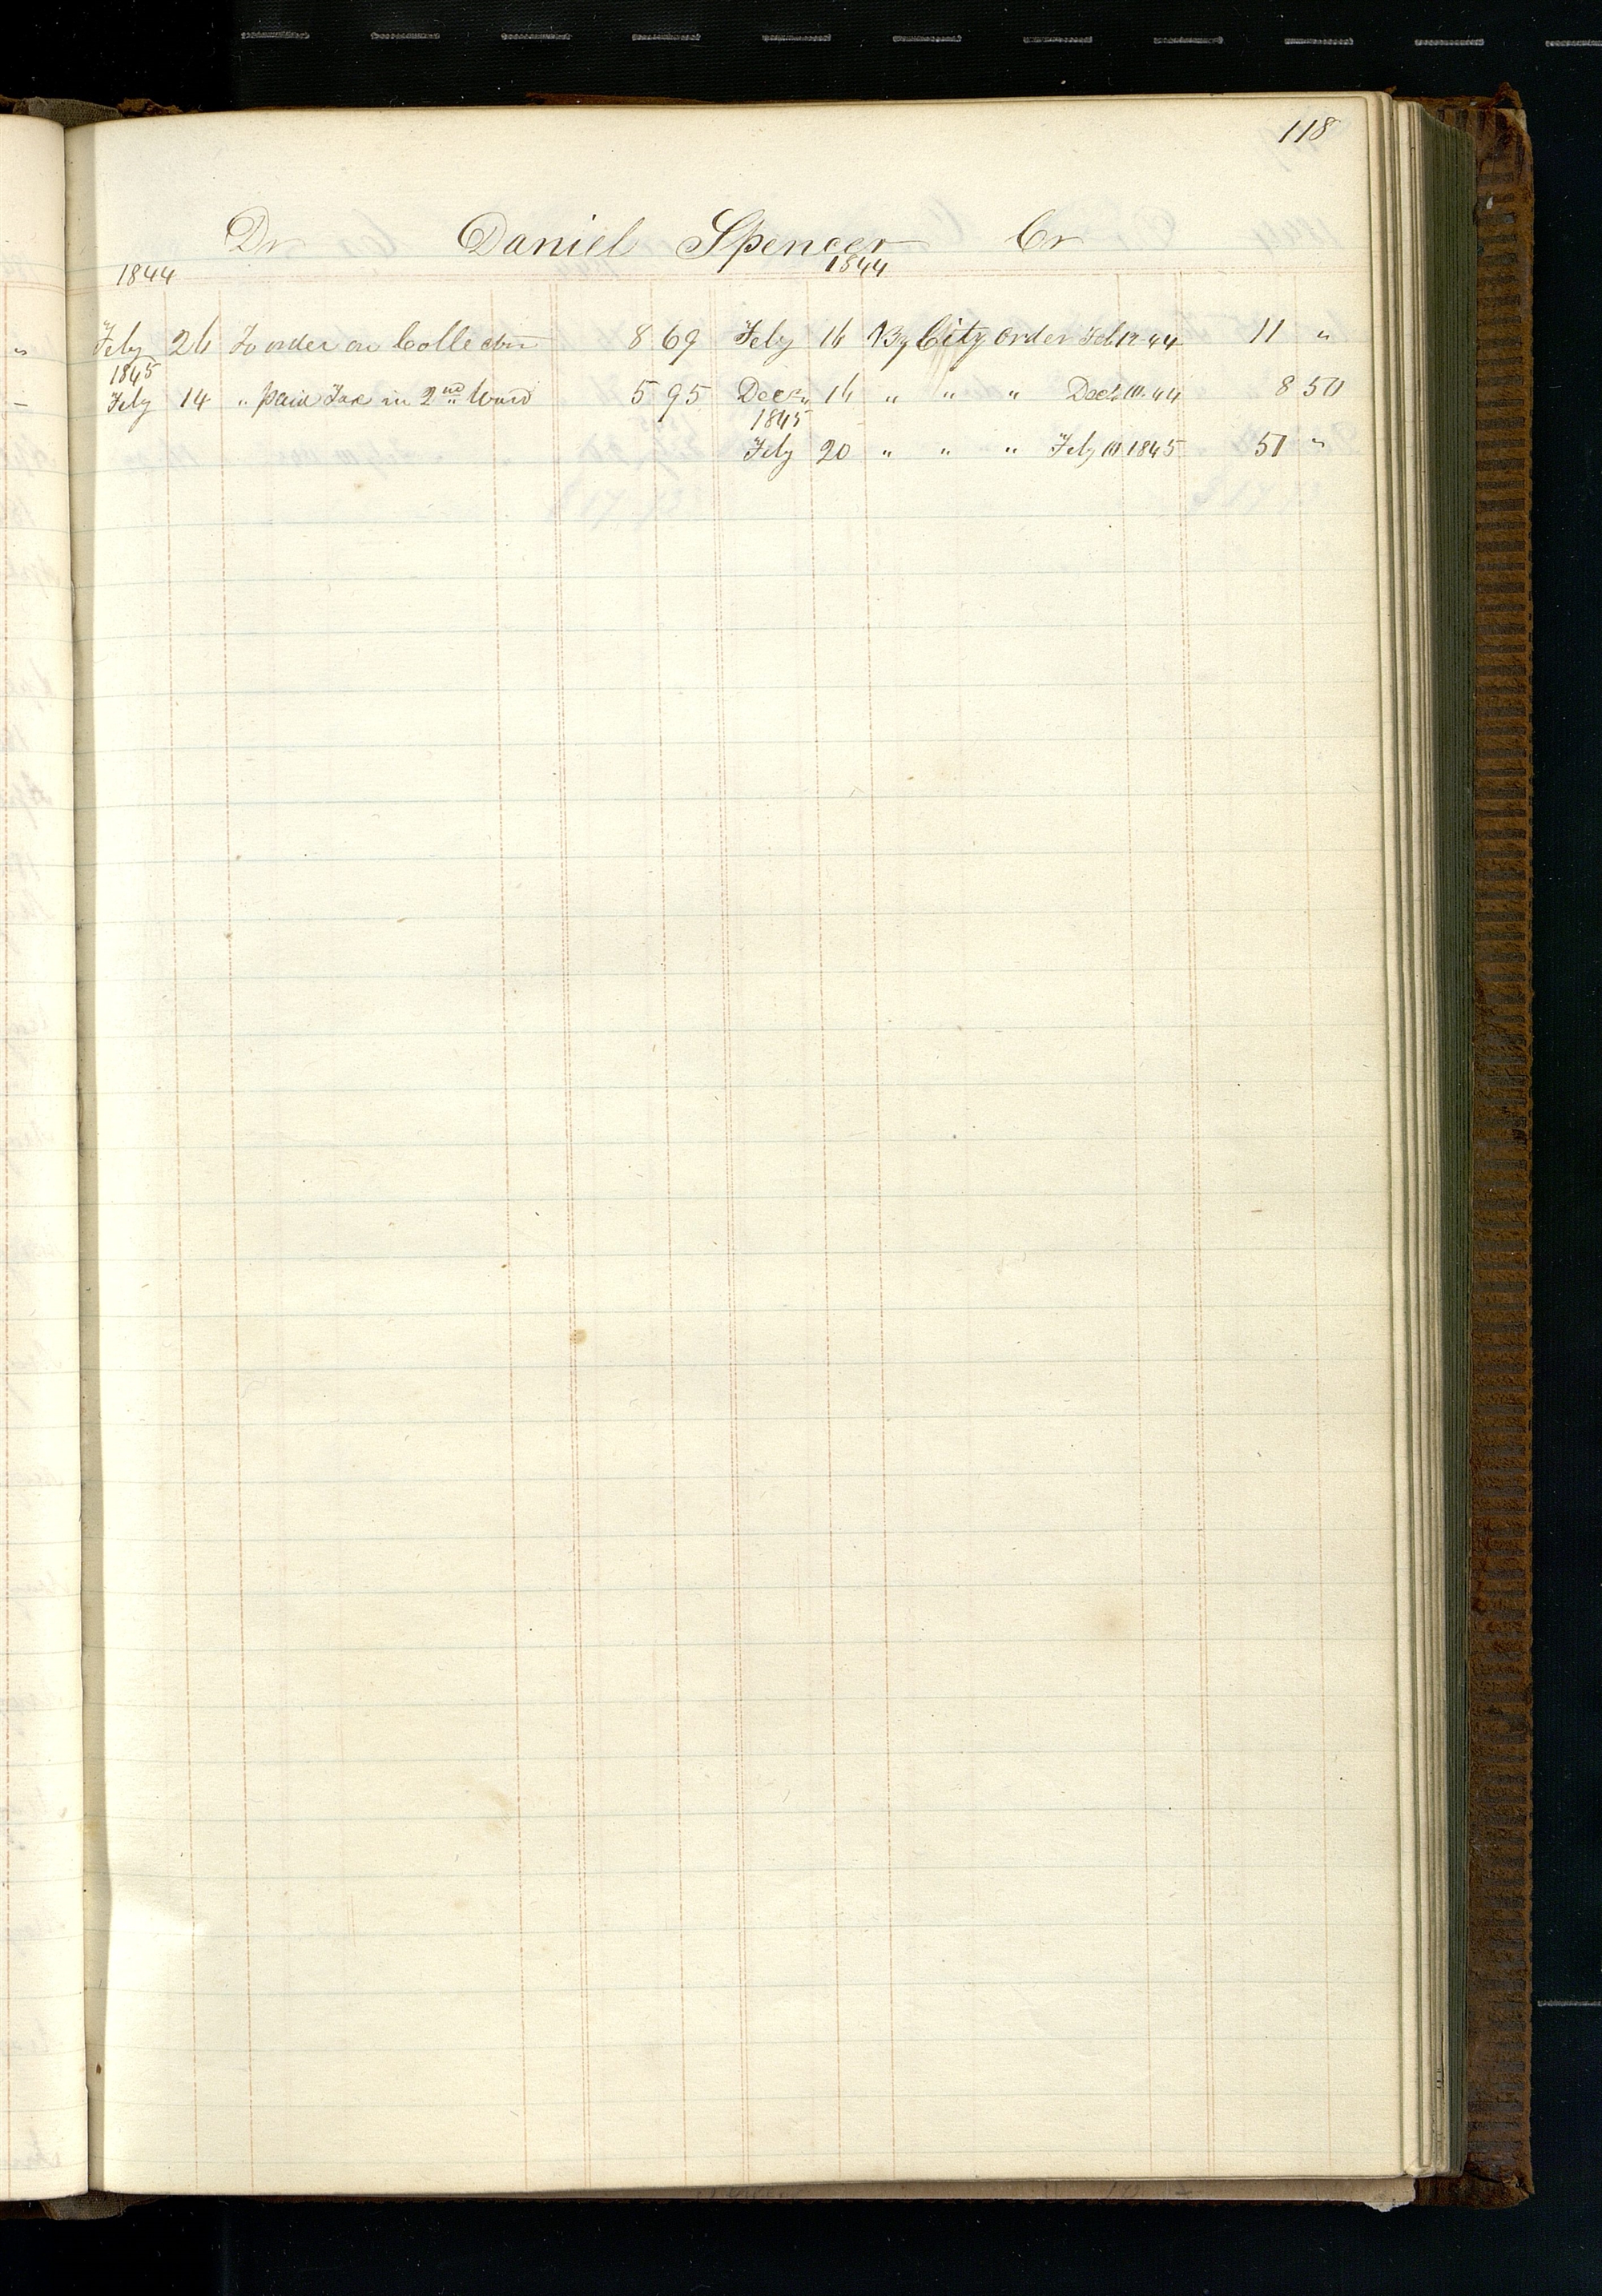 118
Dr Daniel Spencer Cr
1844 1844
Feby 26 To order on Collector 8 69 Feby 16 By City Order Feb 12 44 11 "
1845
Feby 14 " paid Tax in 2nd Ward 5 95 Decr 16 " " " Decr 10. 44 8 50
1845
Feby 20 " " " Feby 10 1845 51 "